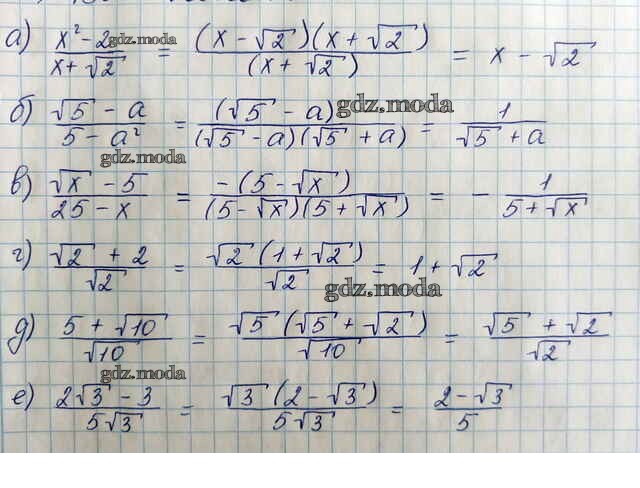 а) (x² - 2)/(x + √2) = ((x - √2)(x + √2))/(x + √2) = x - √2
gdz.moda
б) (√5 - a)/(5 - a²) = (√5 - a)/((√5 - a)(√5 + a)) = 1/(√5 + a)
gdz.moda
gdz.moda
в) (√x - 5)/(25 - x) = (-(5 - √x))/((5 - √x)(5 + √x)) = - 1/(5 + √x)
г) (√2 + 2)/√2 = (√2 (1 + √2))/√2 = 1 + √2
gdz.moda
д) (5 + √10)/√10 = (√5 (√5 + √2))/√10 = (√5 + √2)/√2
gdz.moda
е) (2√3 - 3)/(5√3) = (√3 (2 - √3))/(5√3) = (2 - √3)/5